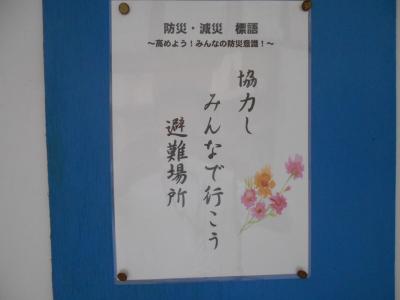 防災・減災　標語
～高めよう！みんなの防災意識！～
協力し
みんなで行こう
避難場所